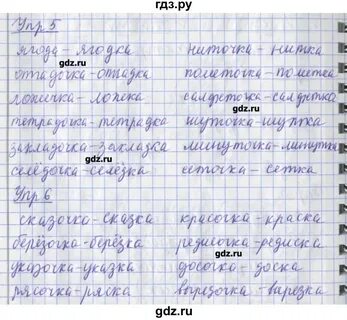 гдз.ру
Упр 5
ягода - ягодка ниточка - нитка
отгадочка - отгадка пометочка - пометка
ложечка - ложка салфеточка - салфетка
тетрадочка - тетрадка шуточка - шутка
закладочка - закладка минуточка - минутка
селёдочка - селёдка сеточка - сетка
Упр 6
сказочка - сказка красочка - краска
берёзочка - берёзка редисочка - редиска
указочка - указка досочка - доска
рясочка - ряска варежка